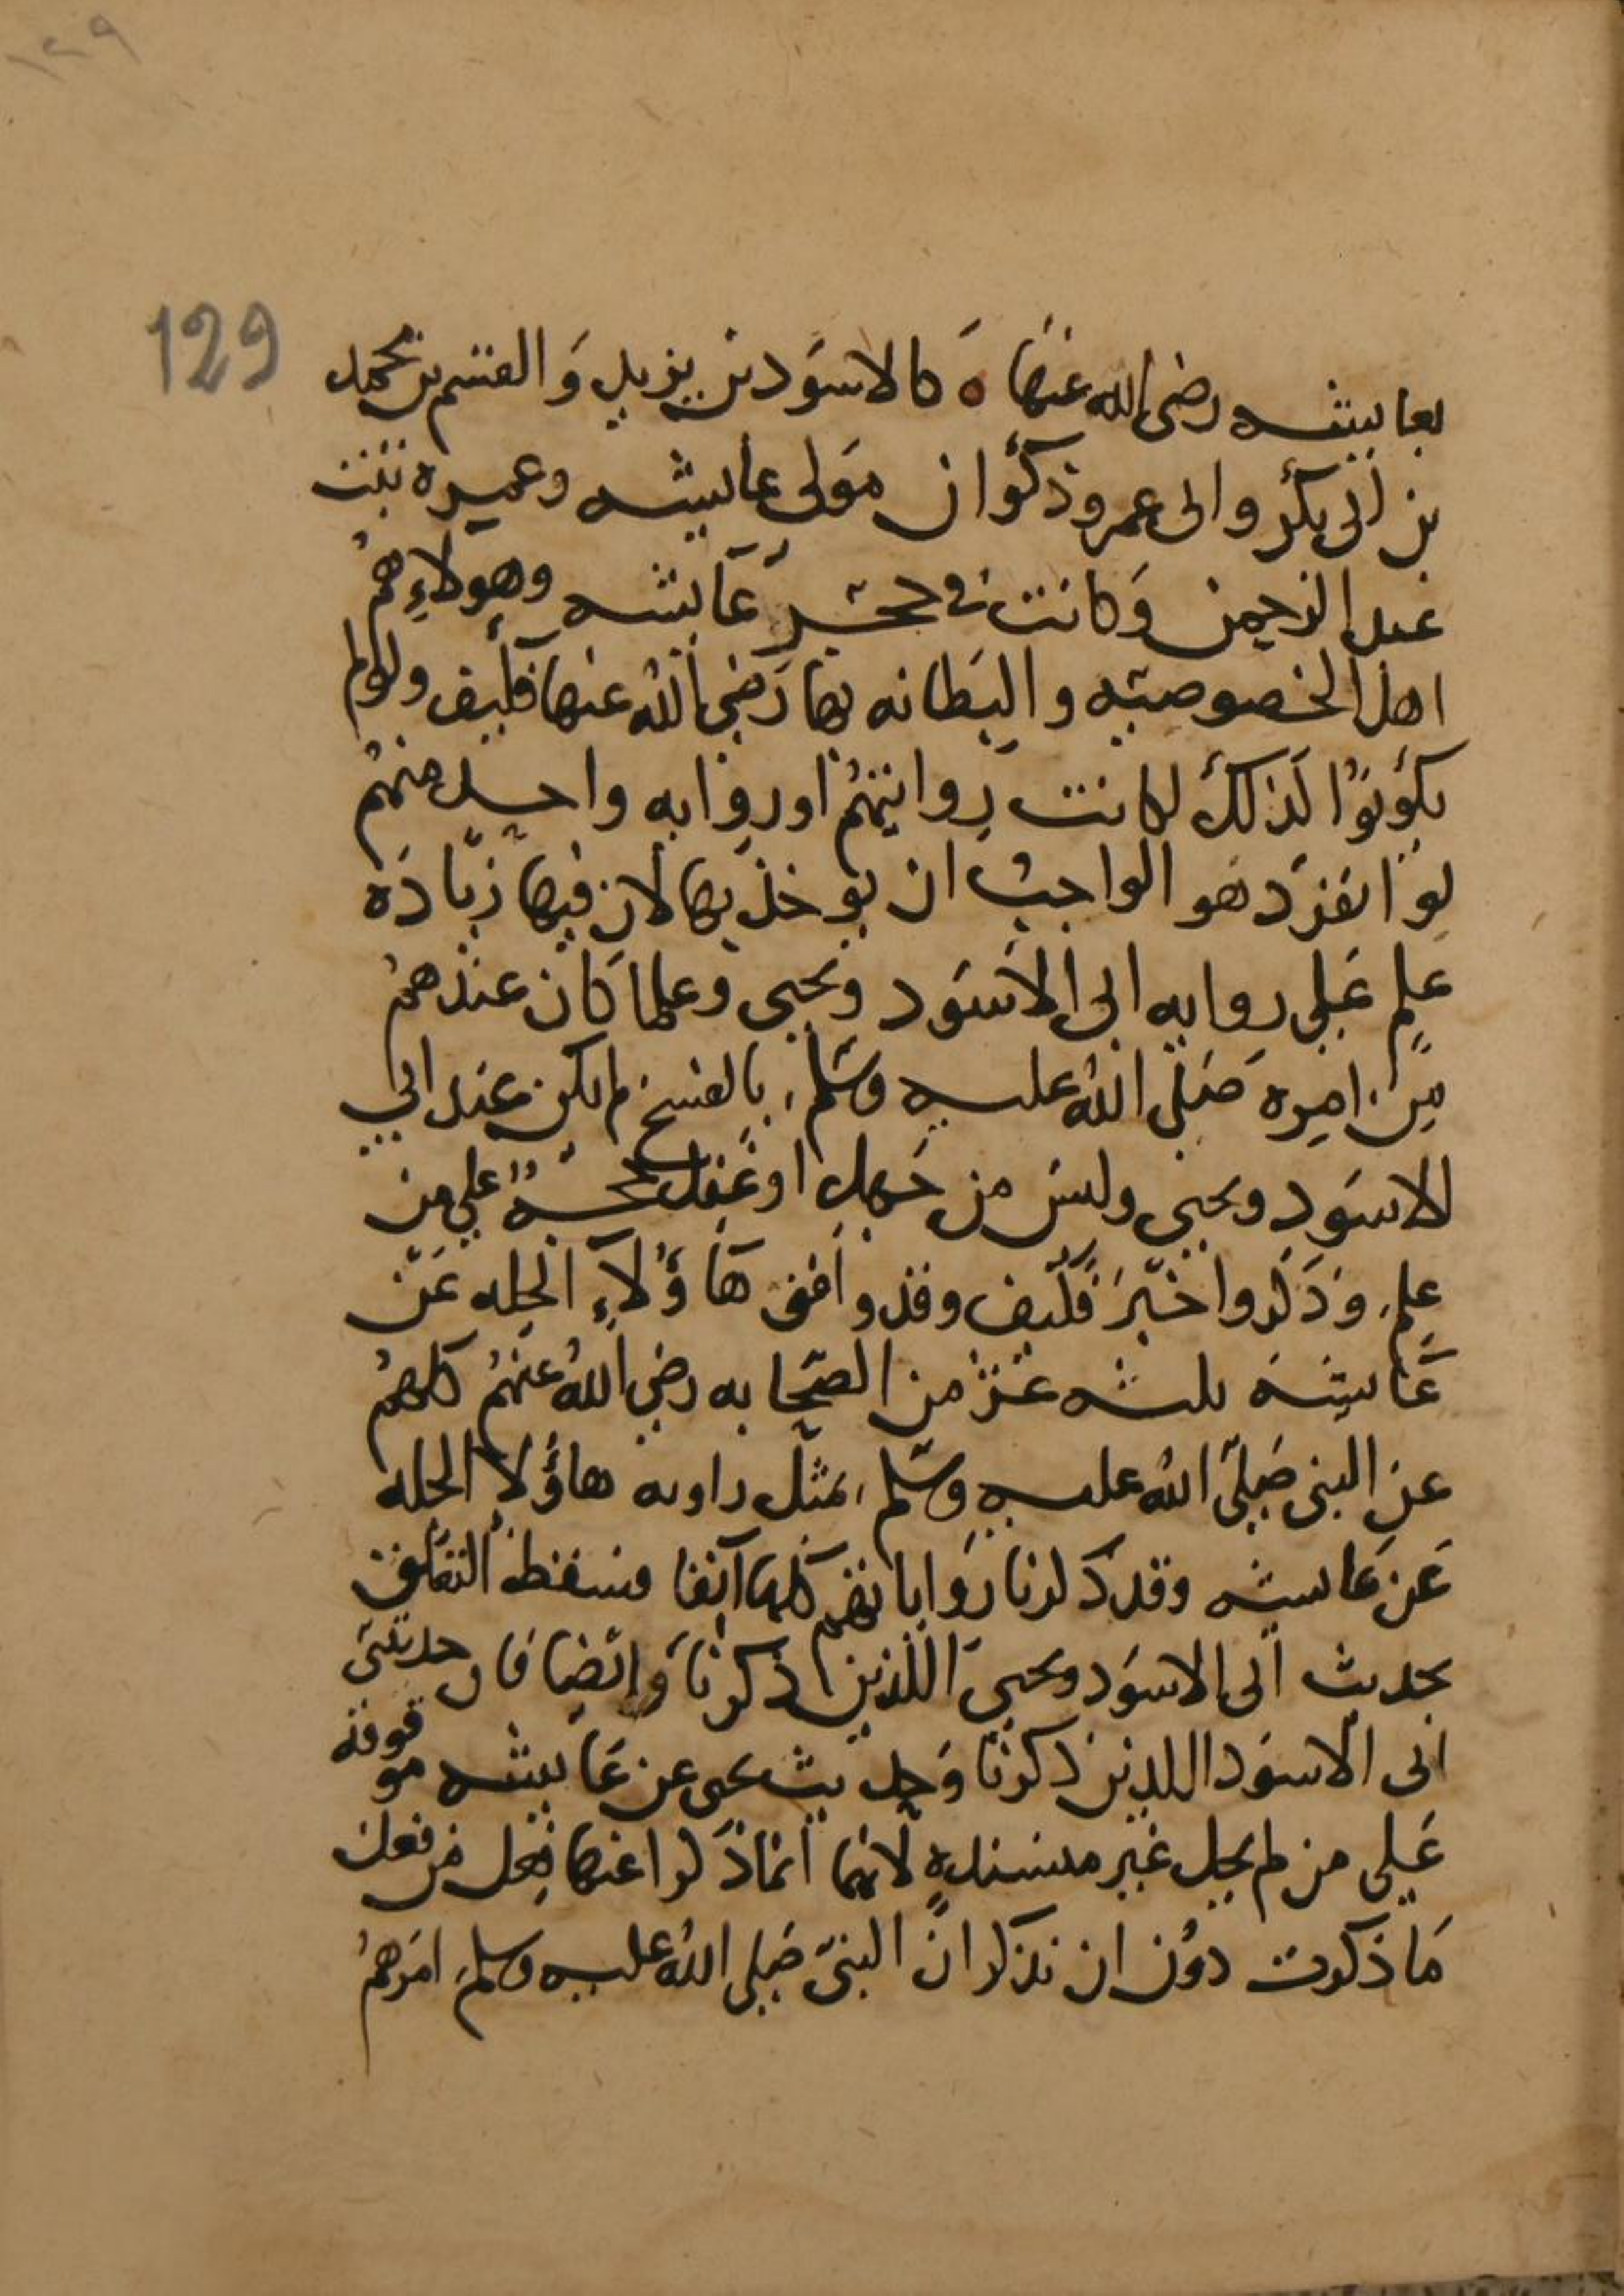 ١٢٩
129
بعايشه رضي الله عنها ه كالاسود بن يزيد والقسم بن محمد
بن ابي بكر وابي عمرو ذكوان مولى عايشه وعميره بنت
عبد الرحمن وكانت في حجر عايشه وهولاء هم
اهل الخصوصيه والبطانه بها رضي الله عنها فكيف ولو لم
يكونوا كذلك لكانت روايتهم او روايه واحد منهم
لو انفرد هو الواجب ان يوخذ بها لان فيها زياده
علم على روايه ابي الاسود ويحيى وعلما كان عندهم
من امره صلى الله عليه وسلم بالفسخ لم يكن عند ابي
الاسود ويحيى وليس من جهل او غفل حجة على من
علم وذكروا خبر فكيف وقد وافق هاؤلاء الجله عن
عايشه ثلثه عشر من الصحابه رضي الله عنهم كلهم
عن النبي صلى الله عليه وسلم بمثل راويه هاؤلا الجله
عن عايشه وقد ذكرنا رواياتهم كلها آنفا فسقط التعلق
بحديث ابي الاسود ويحيى اللذين ذكرنا وايضا فان حديثي
ابي الاسود اللذين ذكرنا وحديث يحيى عن عايشه موقوفة
على من لم يحل غير مسندة لانهما انما ذكرا عنها فعل من فعل
ما ذكرت دون ان نذكر ان النبي صلى الله عليه وسلم امرهم